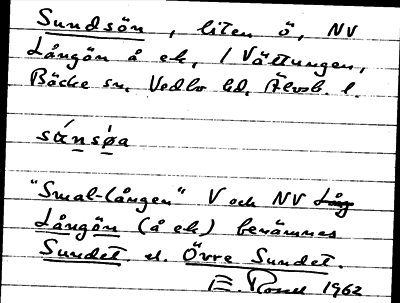 Sundsön, liten ö, NV
Långön å ek, i Vättungen,
Bäcke sn, Vedbo hd, Älvsb. l.
sɑ́nsøa
"Smal-Lången" V och NV Lång
Långön (å ek) benämnes
Sundet el. Övre Sundet.
1962